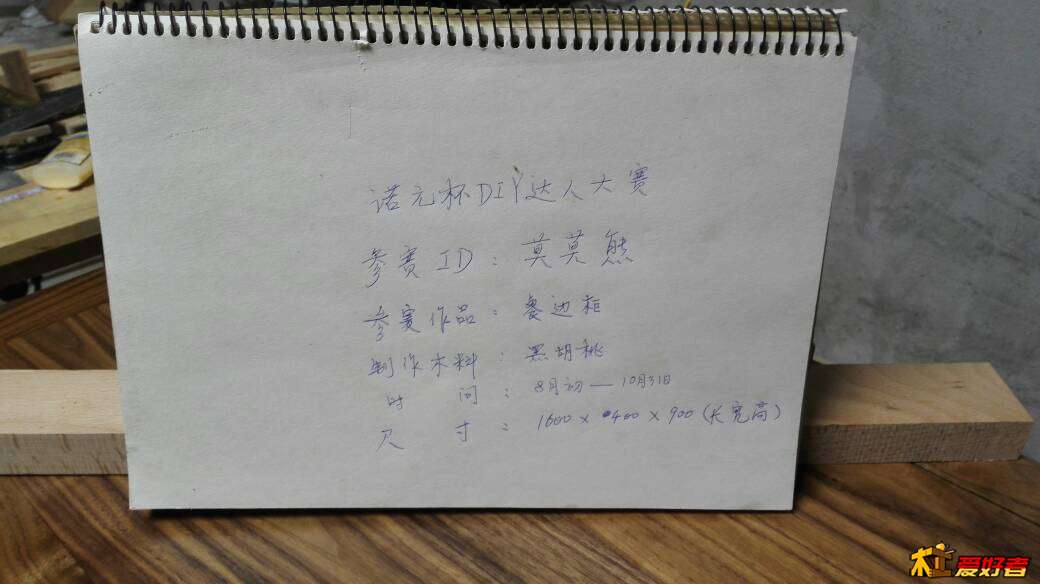 诺元杯DIY达人大赛
参赛ID：莫莫熊
参赛作品：餐边柜
制作木料：黑胡桃
时间：8月初—10月31日
尺寸：1600×400×900(长宽高)
木工爱好者